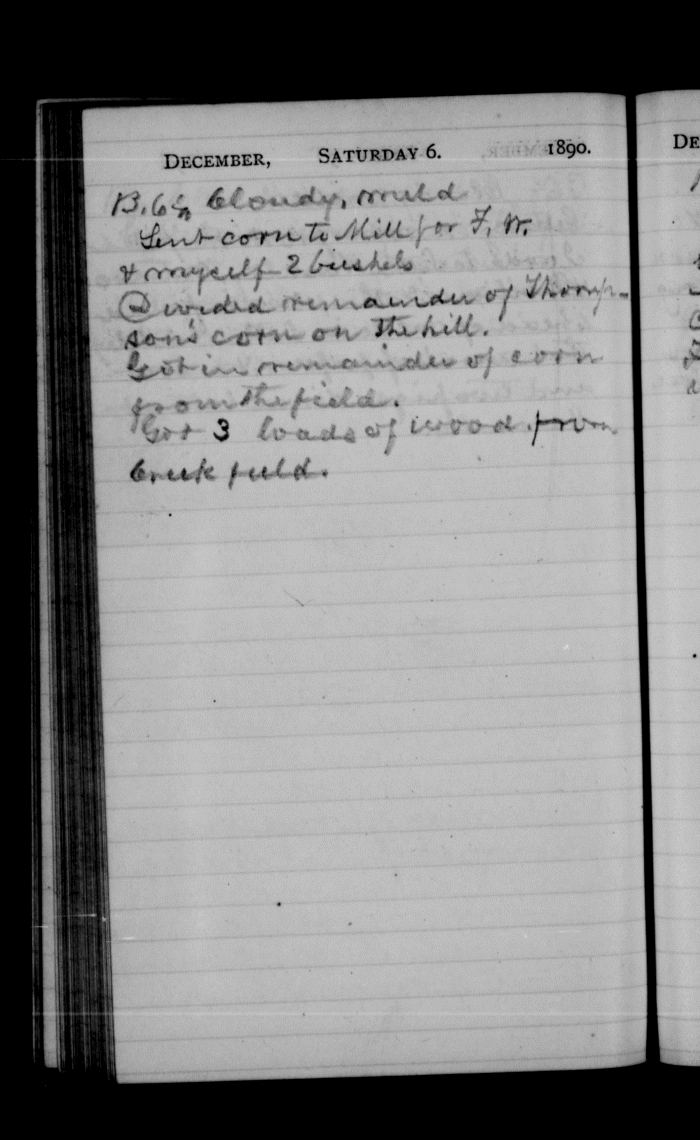 DECEMBER, SATURDAY 6. 1890.
B. 6½ Cloudy, mild
Sent corn to Mill for F. W.
& myself 2 bushels
Divided remainder of Thomp-
son's corn on the hill.
Got in remainder of corn
from the field.
Got 3 loads of wood from
Creek field.
DE